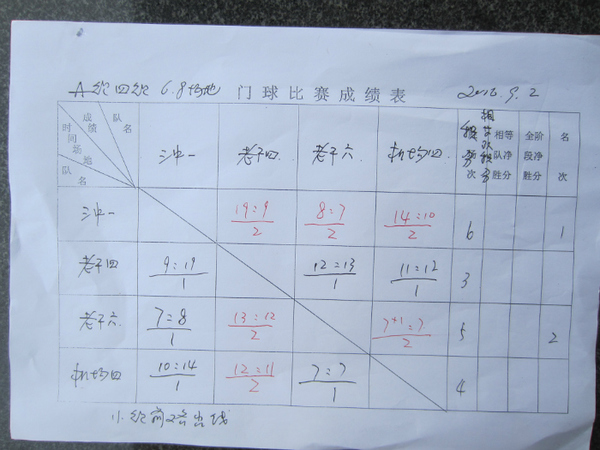 A 组四组 6.8场地 门球比赛成绩表 2016.9.2
队名 成绩 时间 场地 队名 三冲一 老干四 老干六 机场四 积分 场次 相等队净胜分 全阶段净胜分 名次
三冲一 19:9 2 8:7 2 14:10 2 6 1
老干四 9:19 1 12:13 1 11:12 1 3
老干六 7:8 1 13:12 2 7+1:7 2 5 2
机场四 10:14 1 12:11 2 7:7 1 4
小组前2名出线